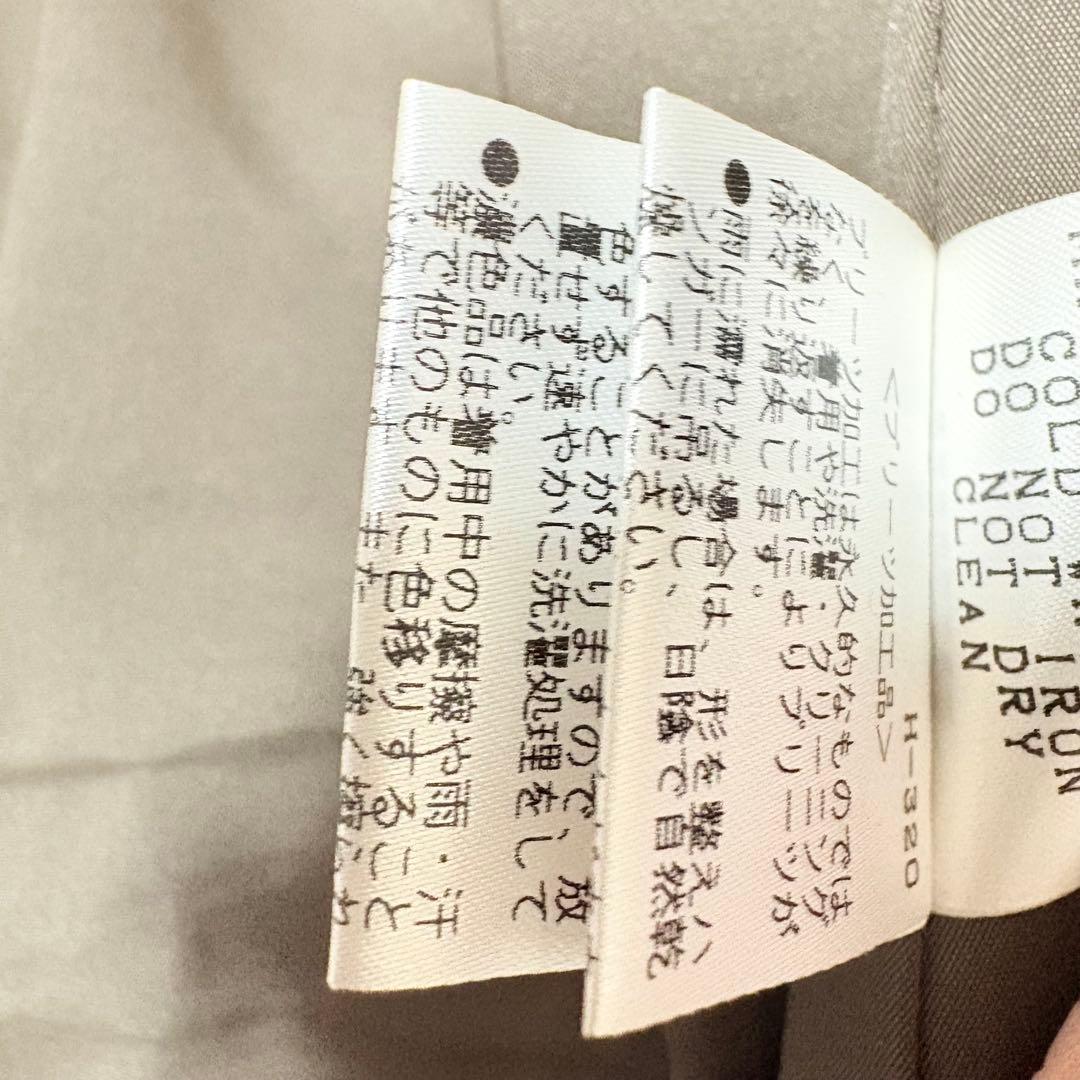 COLD
DO NOT IRON
DO NOT DRY
CLEAN
H-320
<プリーツ加工品>
プリーツ加工は永久的なものでは
なく、着用や洗濯、クリーニング
を繰り返すことによりプリーツが
徐々に消失します。
●雨に濡れた場合は、形を整えハ
ンガーに吊るし、日陰で自然乾
燥してください。
色することがありますので、放
置せず速やかに洗濯処理をして
ください。
●濃色品は着用中の摩擦や雨・汗
等で他のものに色移りすること
また 強く擦